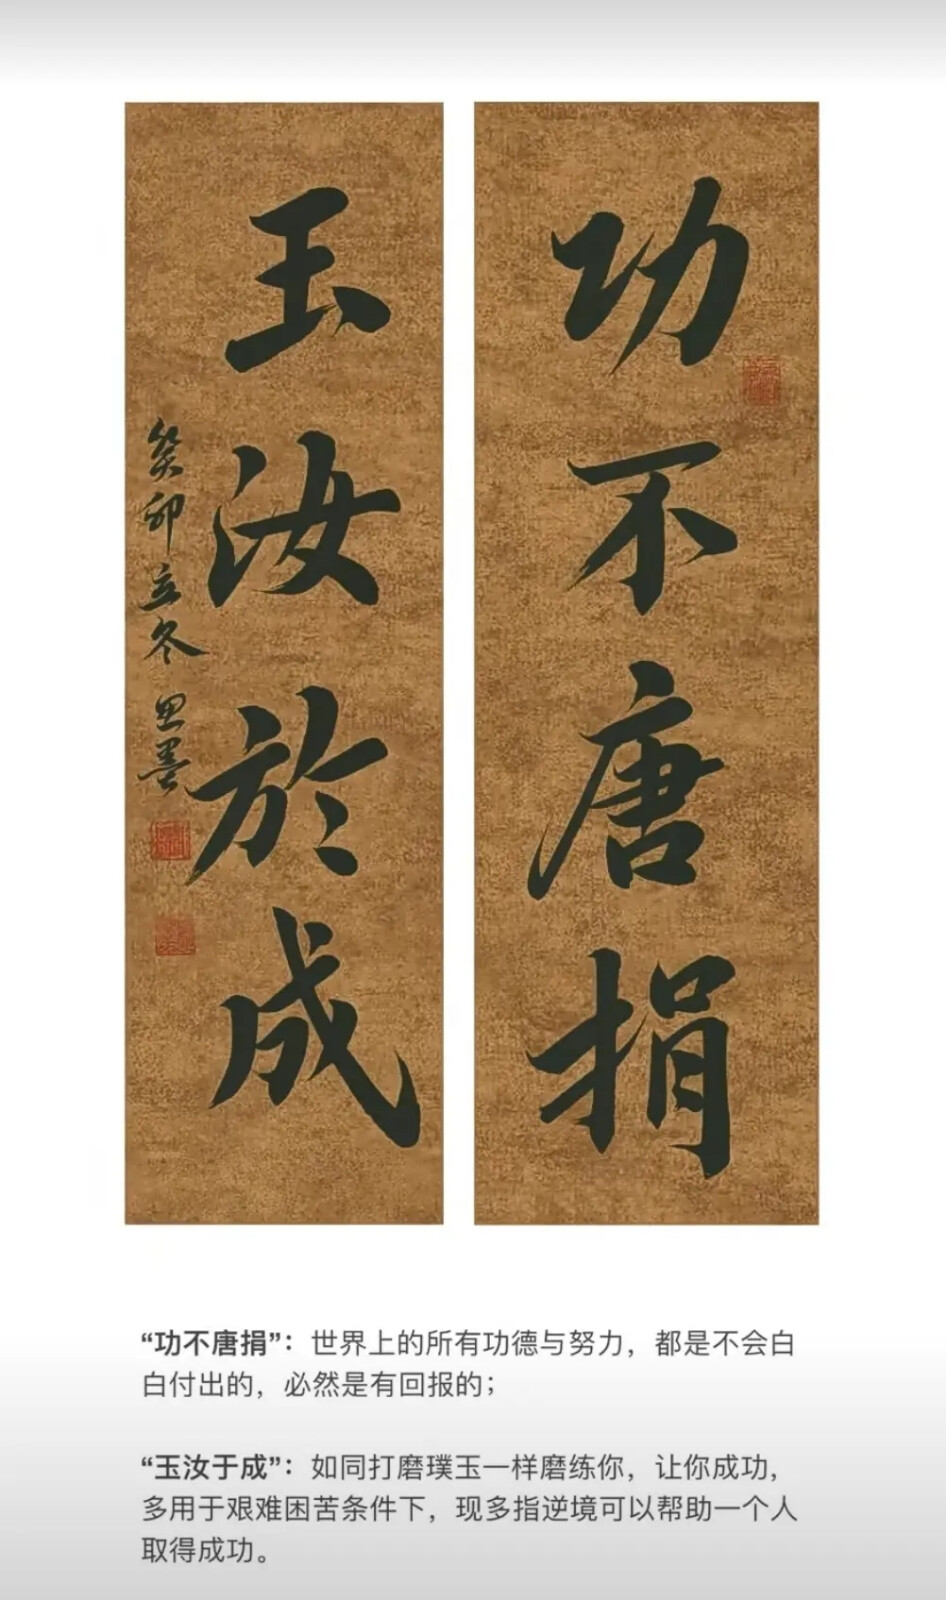 功不唐捐
玉汝於成
癸卯立冬思墨
“功不唐捐”：世界上的所有功德与努力，都是不会白
白付出的，必然是有回报的；
“玉汝于成”：如同打磨璞玉一样磨练你，让你成功，
多用于艰难困苦条件下，现多指逆境可以帮助一个人
取得成功。